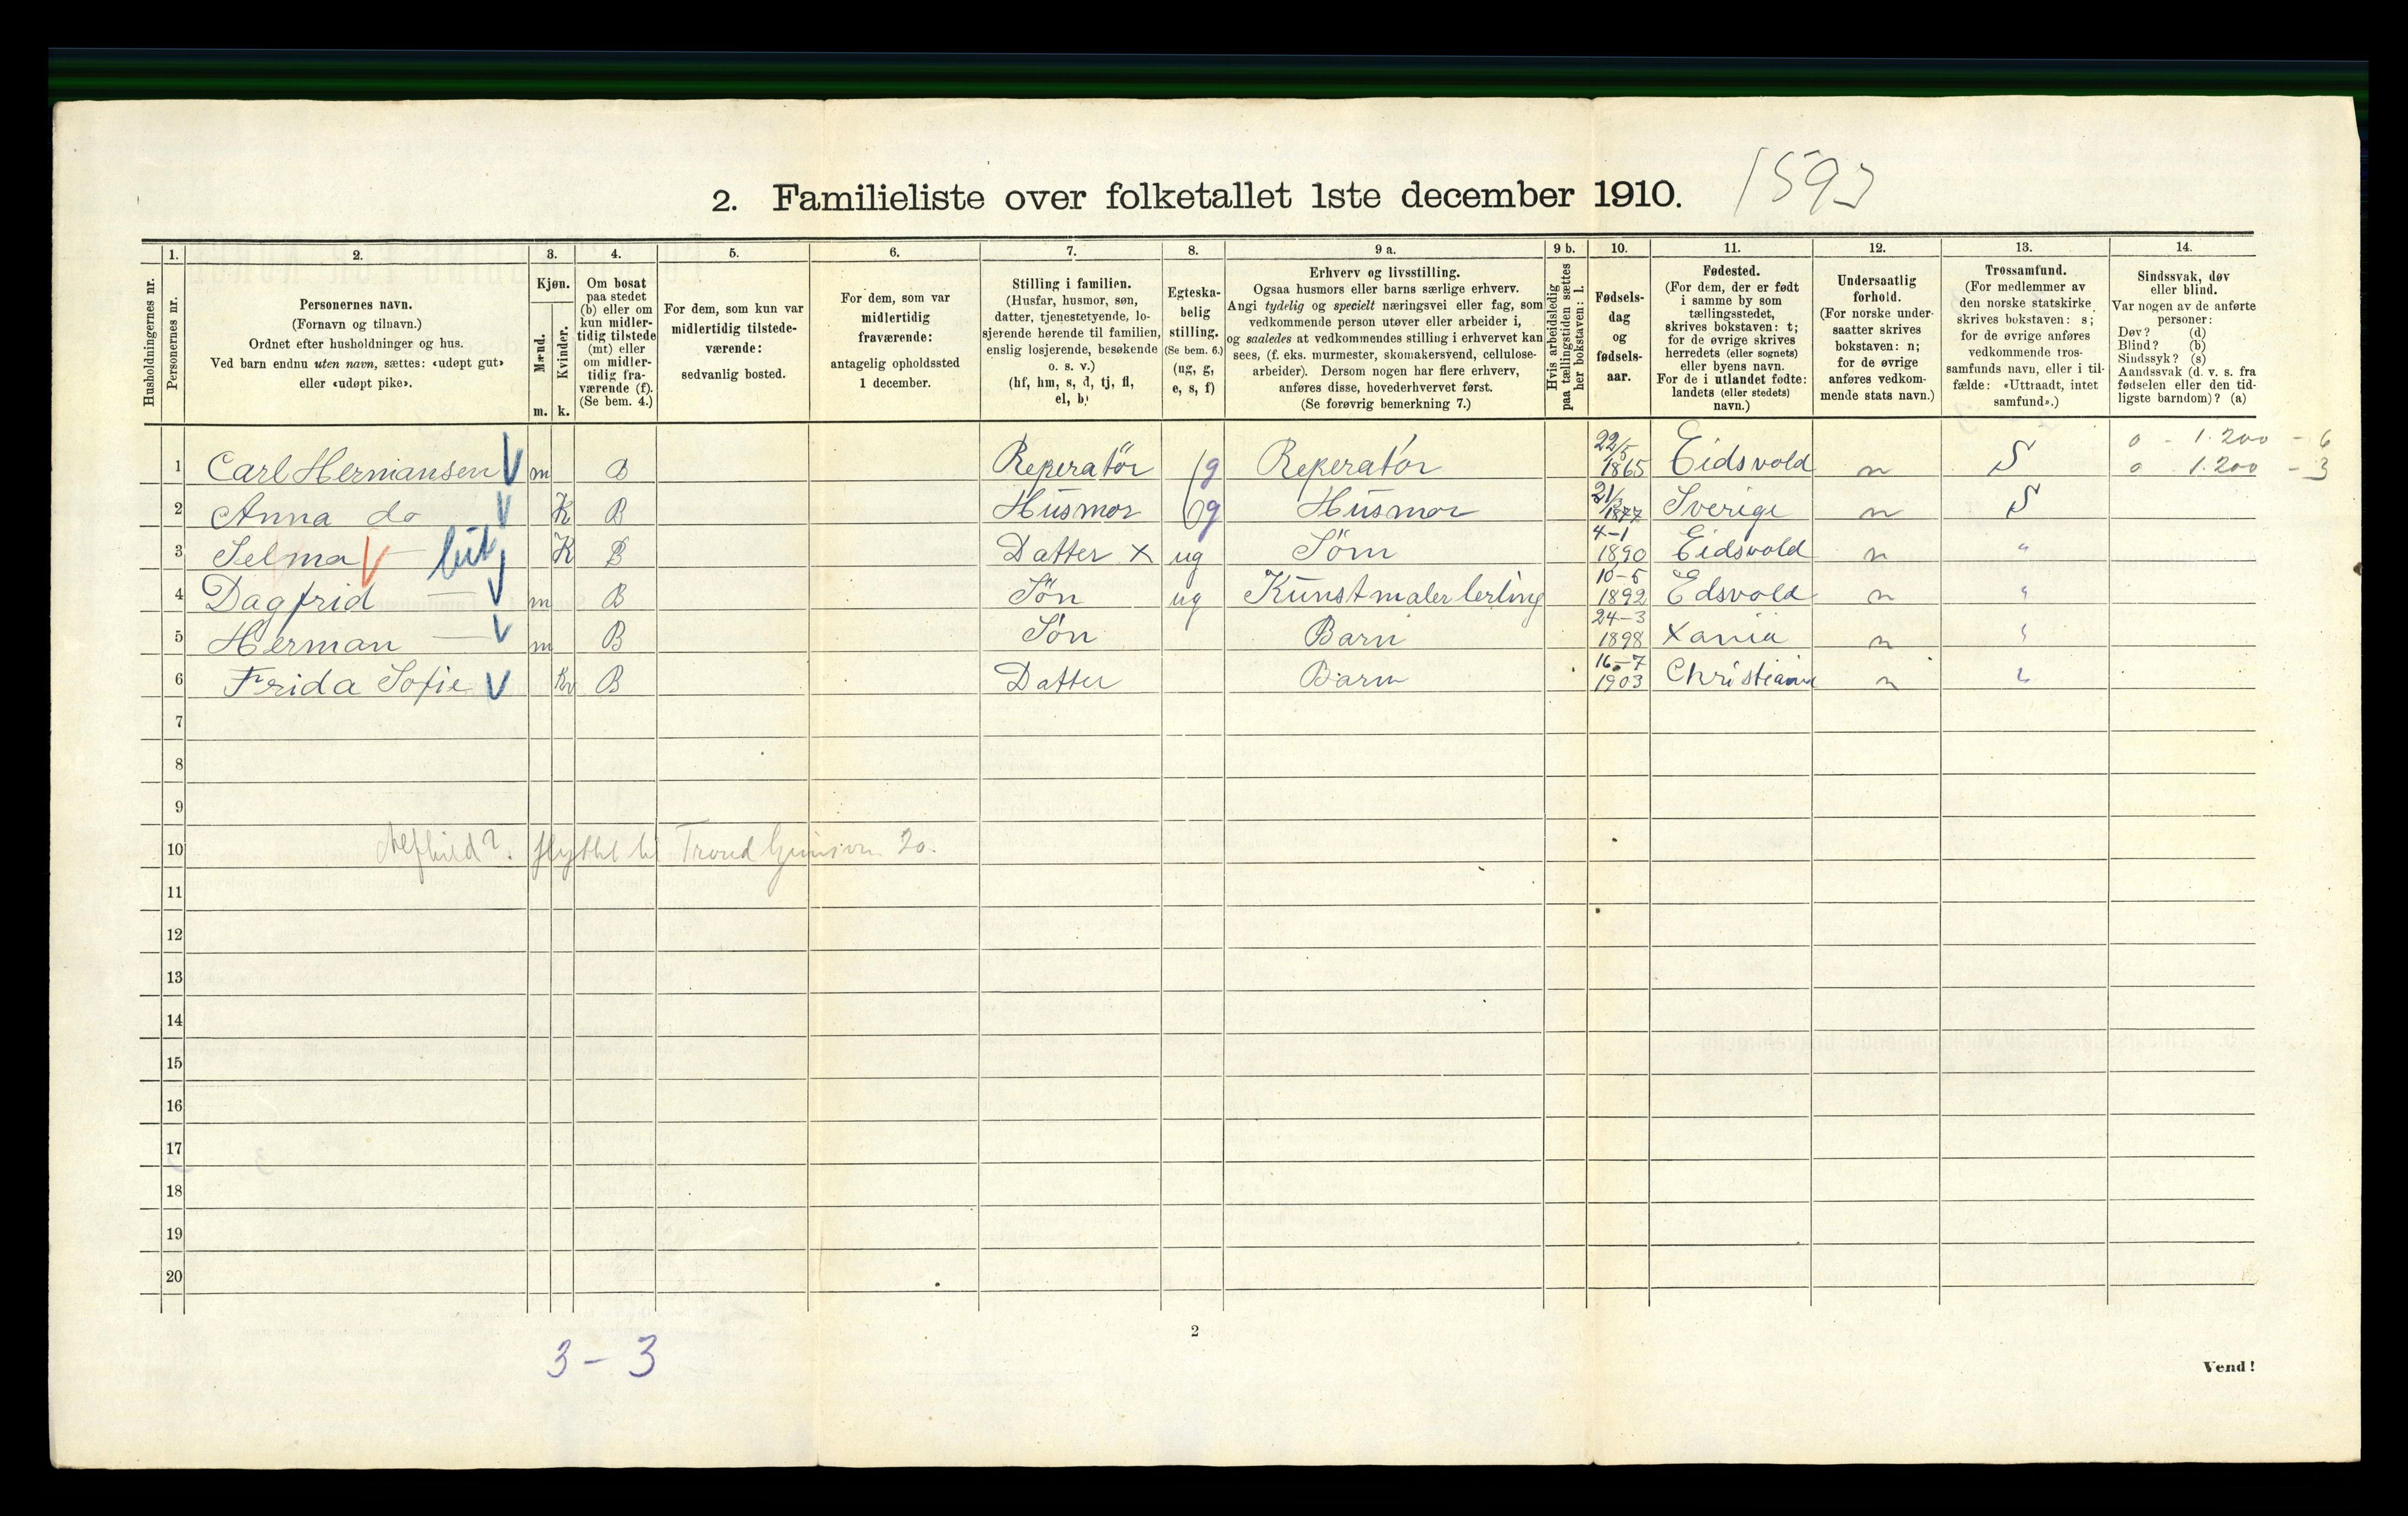 2. Familieliste over folketallet 1ste december 1910. 1593
Husholdningernes nr.
1. Personernes nr.
2. Personernes navn. (Fornavn og tilnavn.) Ordnet efter husholdninger og hus. Ved barn endnu uten navn, sættes: «udøpt gut» eller «udøpt pike».
3. Kjøn. Mænd. m. Kvinder. k.
4. Om bosat paa stedet (b) eller om kun midler-tidig tilstede (mt) eller om midler-tidig fra-værende (f). (Se bem. 4.)
5. For dem, som kun var midlertidig tilstede-værende: sedvanlig bosted.
6. For dem, som var midlertidig fraværende: antagelig opholdssted 1 december.
7. Stilling i familien. (Husfar, husmor, søn, datter, tjenestetyende, lo-sjerende hørende til familien, enslig losjerende, besøkende o. s. v.) (hf, hm, s, d, tj, fl, el, b)
8. Egteska-belig stilling. (Se bem. 6.) (ug, g, e, s, f)
9 a. Erhverv og livsstilling. Ogsaa husmors eller barns særlige erhverv. Angi tydelig og specielt næringsvei eller fag, som vedkommende person utøver eller arbeider i, og saaledes at vedkommendes stilling i erhvervet kan sees, (f. eks. murmester, skomakersvend, cellulose-arbeider). Dersom nogen har flere erhverv, anføres disse, hovederhvervet først. (Se forøvrig bemerkning 7.)
9 b. Hvis arbeidsledig paa tællingstiden sættes her bokstaven: l.
10. Fødsels-dag og fødsels-aar.
11. Fødested. (For dem, der er født i samme by som tællingsstedet, skrives bokstaven: t; for de øvrige skrives herredets (eller sognets) eller byens navn. For de i utlandet fødte: landets (eller stedets) navn.)
12. Undersaatlig forhold. (For norske under-saatter skrives bokstaven: n; for de øvrige anføres vedkom-mende stats navn.)
13. Trossamfund. (For medlemmer av den norske statskirke skrives bokstaven: s; for de øvrige anføres vedkommende tros-samfunds navn, eller i til-fælde: «Uttraadt, intet samfund».)
14. Sindssvak, døv eller blind. Var nogen av de anførte personer: Døv? (d) Blind? (b) Sindssyk? (s) Aandssvak (d. v. s. fra fødselen eller den tid-ligste barndom)? (a)
0 - 1.200 - 6
1 Carl Hermansen m B Reperatör g Reperatör 22/5 1865 Eidsvold n S 0 1.200 - 3
2 Anna do K B Husmor g Husmor 21/3 1877 Sverige n S
3 Selma — K B Datter x ug Söm 4-1 1890 Eidsvold n "
4 Dagfrid — m B Sön ug Kunstmalerlerling 10-5 1892 Edsvold n "
5 Herman — m B Sön Barn 24-3 1898 Xania n "
6 Frida Sofie Kv B Datter Barn 16-7 1903 Christiania n "
7
8
9
10 flyttet til Trond 20.
11
12
13
14
15
16
17
18
19
20
2
3 - 3
Vend!